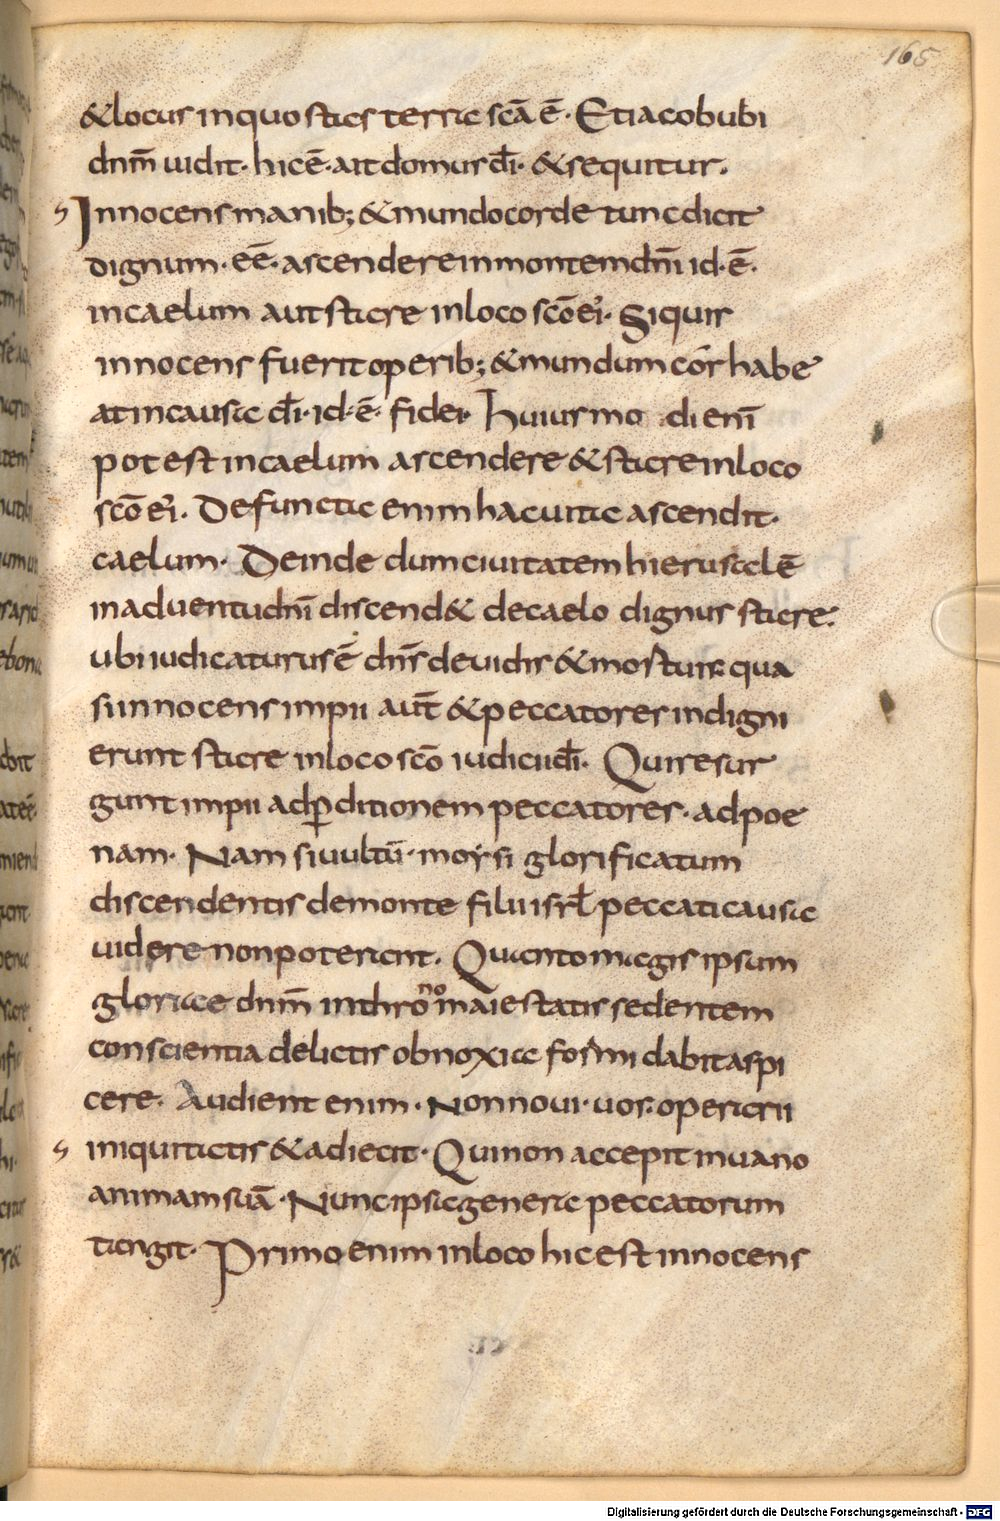 165
&locus inquo stas terra scā ē· Et iacob ubi
dnm̄ uidit· hic ē· ait domus dī· & sequitur·
Innocens manib; & mundo corde tunc dicit
dignum· eē· ascendere in montem dnī id· ē·
in caelum aut stare in loco scō ei'· Siquis
innocens fuerit operib; & mundum cór habe
at in causa dī· id· ē· fidei· Huius mo di enī
potest in caelum ascendere & stare in loco
scō ei'· Defuncta enim hac uita ascendit·
caelum· Deinde dum ciuitatem hierusalē
in aduentu dnī discend& de caelo dignus stare·
ubi iudicaturus ē dns̄ de uidis & mostuis qua
si innocens impii aut̄ & peccatores indigni
erunt stare in loco scō iudicii dī· Qui resur
gunt impii ad p̱ditionem peccatores· ad poe
nam· Nam si uultū· moysi glorificatum
discendentis de monte filii isrl̄ peccati causa
uidere non poterant· Quanto magis ipsum
gloriae dnm̄ in throno maiestatis sedentem
conscientia delictis obnoxia formidabit aspi
cere· Audient enim· Non noui· uos· operarii
iniquitatis & adiecit· Qui non accepit in uano
animam suā· Nunc ipsa genera peccatorum
tangit· Primo enim in loco hic est innocens
Digitalisierung gefördert durch die Deutsche Forschungsgemeinschaft - DFG